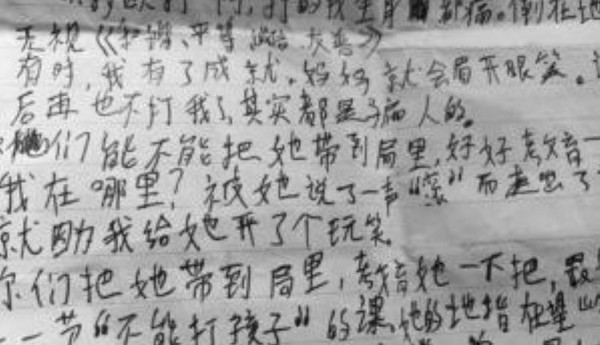 打的我全身都痛。倒在地
无视《和谐、平等、团结、友善》
有时,我有了成就。妈妈就会眉开眼笑。
后再也不打我了,其实都是骗人的。
他们能不能把她带到局里,好好教育一
我在哪里?被她说了一声“滚”而走出了
就因为我给她开了个玩笑
你们把她带到局里,教育她一下把,最
一节“不能打孩子”的课,她的地指在